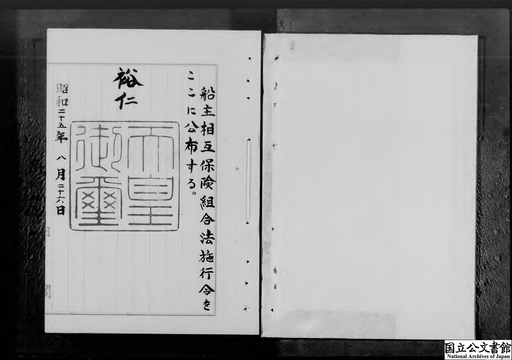 船主相互保険組合法施行令を
ここに公布する。
裕仁
天皇
御璽
昭和二十五年八月二十六日
国立公文書館
National Archives of Japan